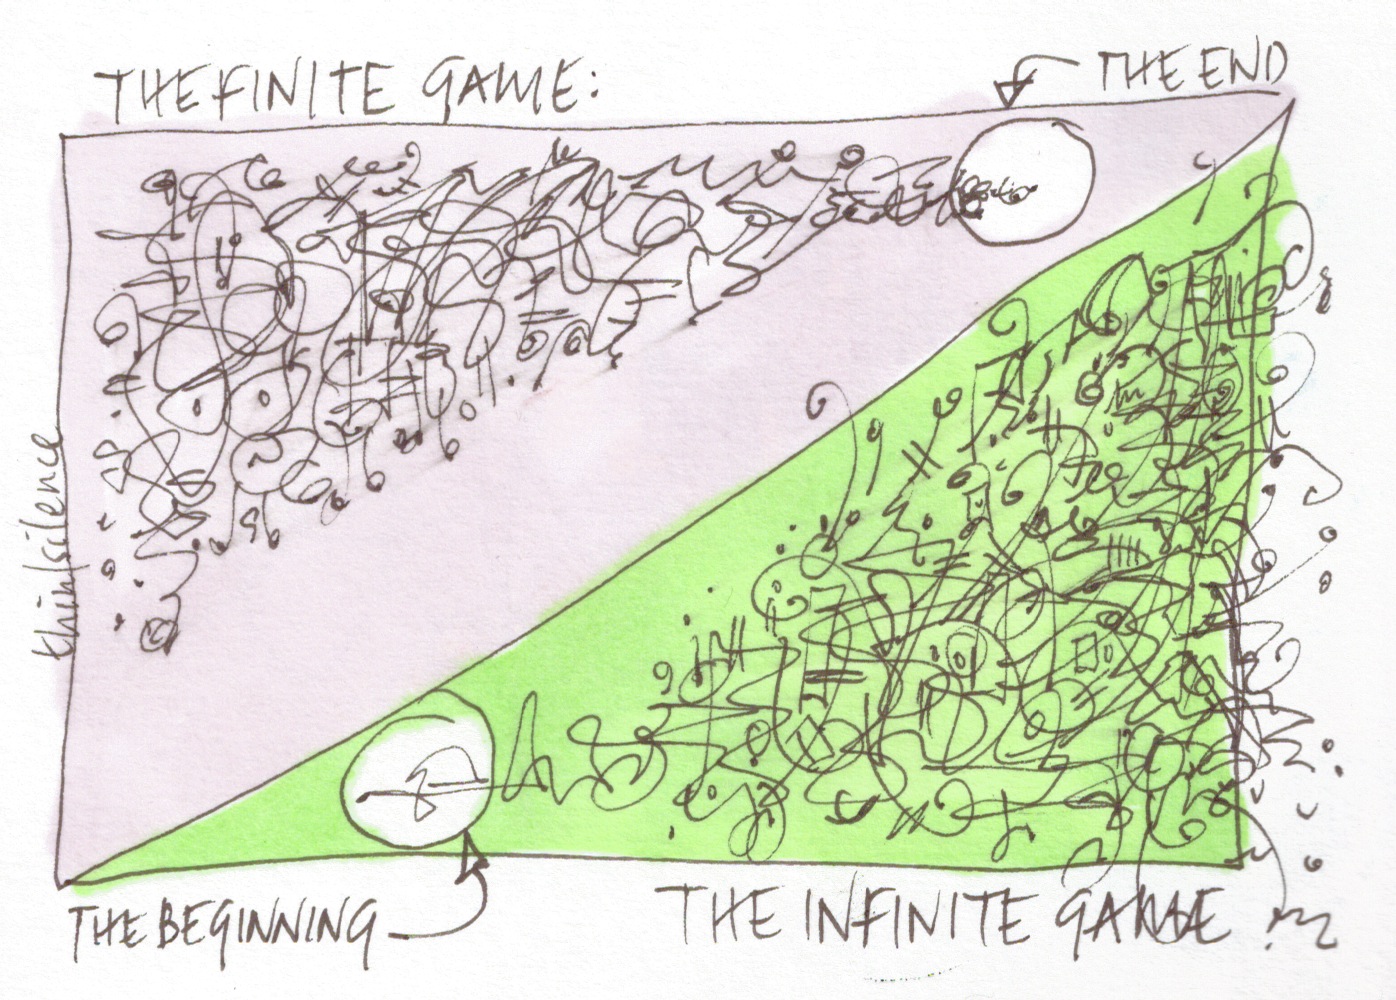 THE FINITE GAME:
THE END
thinksilence
THE BEGINNING
THE INFINITE GAME